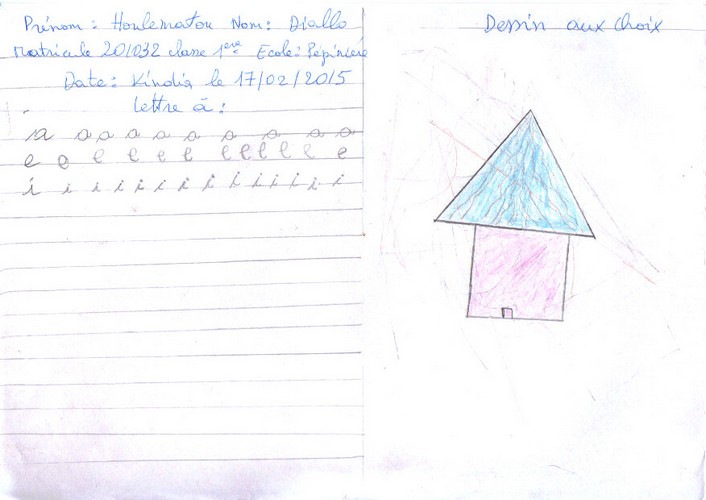 Prénom : Houlematou Nom : Diallo
Matricule 201032 classe 1ère Ecole : Pépinière
Date : Kindia le 17/02/2015
lettre à :
a a a a a a a a a a
e e e e e e e e e e e e
i i i i i i i i i i i i i
Dessin aux choix